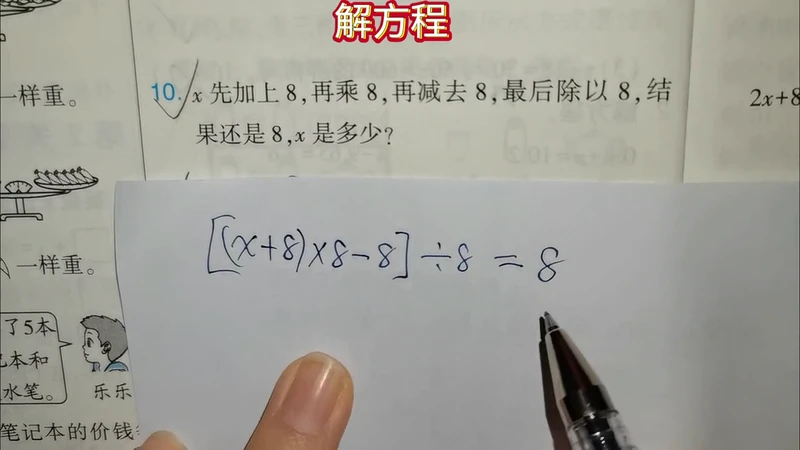 解方程
一样重。
10. x 先加上 8,再乘 8,再减去 8,最后除以 8,结
果还是 8,x 是多少?
2x+8
[(x+8)×8-8]÷8=8
一样重。
了5本
本和
水笔。
乐乐
笔记本的价钱